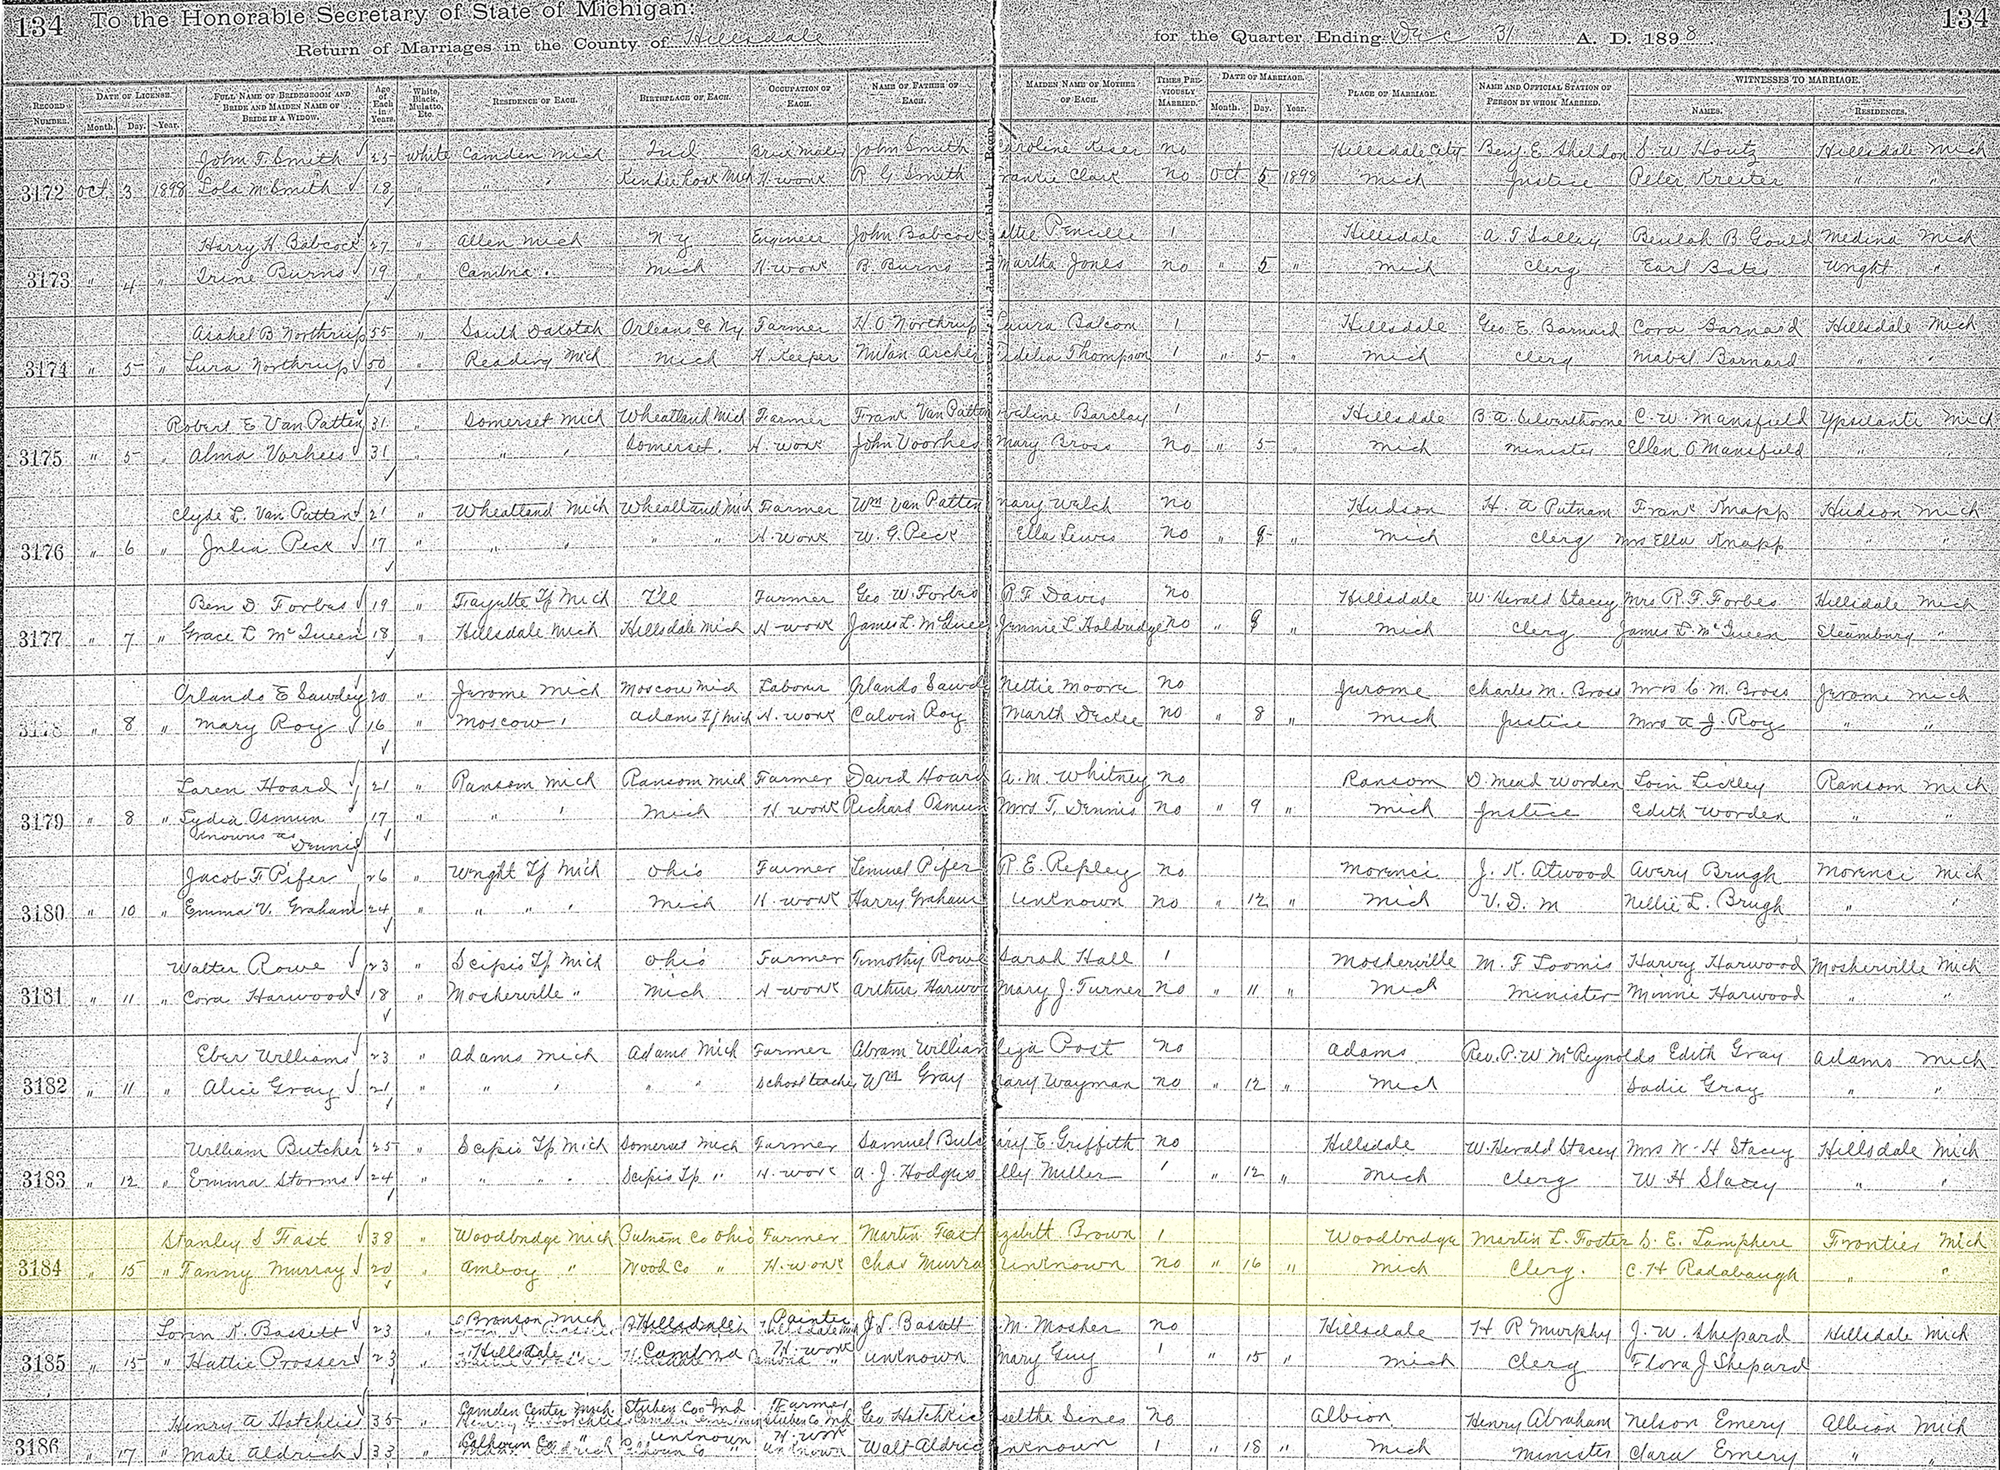 134 To the Honorable Secretary of State of Michigan: 134
Return of Marriages in the County of Hillsdale for the Quarter Ending Dec 31 A. D. 1898
Record Number. Date of License. Month. Day. Year. Full Name of Bridegroom and Bride and Maiden Name of Bride if a Widow. Age of Each in Years. White, Black, Mulatto, Etc. Residence of Each. Birthplace of Each. Occupation of Each. Name of Father of Each. Maiden Name of Mother of Each. Times Previously Married. Date of Marriage. Month. Day. Year. Place of Marriage. Name and Official Station of Person by whom Married. Witnesses to Marriage. Names. Residences.
John F. Smith 25 White Camden Mich Ind John Smith Caroline Kiser no Hillsdale City Benj E. Sheldon S. W. Houtz Hillsdale Mich
3172 Oct. 3 1898 Lola M Smith 18 " " " Kinderhook Mich H work R G Smith Frankie Clark No Oct 5 1898 Mich Justice Peter Kreiter " "
Harry H. Babcock 27 " Allen Mich N Y Engineer John Babcock 1 Hillsdale A. T Salley Beulah B Gould Medina Mich
3173 " 4 " Irene Burns 19 " Cambria " Mich H work B. Burns Martha Jones no " 5 " Mich Clerg Earl Bates Wright "
Asahel B Northrup 55 " South Dakotah Orleans Co NY Farmer H O Northrup Laura Balcom 1 Hillsdale Geo E. Barnard Cora Barnard Hillsdale Mich
3174 " 5 " Lura Northrup 50 " Reading Mich Mich H. Keeper Archer Fidelia Thompson 1 " 5 " Mich Clerg Mabel Barnard " "
Robert E Van Patten 31 " Somerset Mich Wheatland Mich Farmer Frank Van Patten Barclay 1 Hillsdale B. A. Silverthorne C. W. Mansfield Ypsilanti Mich
3175 " 5 " Alma Vorhees 31 " " " Somerset " H work John Voorhes Mary Bross No " 5 " Mich Minister Ellen O Mansfield " "
Clyde L. Van Patten 21 " Wheatland Mich Wheatland Mich Farmer Wm Van Patten Mary Welch No Hudson H. A Putnam Frank Knapp Hudson Mich
3176 " 6 " Julia Peck 17 " " " " " H. Work W. G. Peck Ella Lewis No " 9 " Mich Clerg Mrs Ella Knapp " "
Ben D Forbes 19 " Fayette Tp Mich Ill Farmer Geo W. Forbes R F Davis No Hillsdale W Herald Stacey Mrs R. F. Forbes Hillsdale Mich
3177 " 7 " Grace L McQueen 18 " Hillsdale Mich Hillsdale Mich H work James L. McQuee Jennie L Holdridge no " 9 " Mich Clerg James L. McQueen Steamburg "
Orlando E Sawdey 20 " Jerome Mich Moscow Mich Laborer Orlando Sawd Nettie Moore No Jerome Charles M. Bross Mrs C M. Bross Jerome Mich
3178 " 8 " Mary Roy 16 " Moscow " Adams Tp Mich H. work Calvin Roy Marth Decker No " 8 " Mich Justice Mrs A J. Roy " "
Loren Hoard 21 " Ransom Mich Ransom Mich Farmer David Hoard A. M. Whitney no Ransom D. Mead Worden Loin Lickley Ransom Mich
3179 " 8 " Lydia Osmun 17 " " " Mich H work Richard Osmun Mrs T. Dennis No " 9 " Mich Justice Edith Worden " "
Knowns as Dennis
Jacob F Pifer 26 " Wright Tp Mich Ohio Farmer Lemuel Pifer R E. Repley no Morenci J. K. Atwood Avery Brugh Morenci Mich
3180 " 10 " Emma V. Graham 24 " " " " Mich H. work Harry Graham Unknown No " 12 " Mich V. D. M Nellie L. Brugh " "
Walter Rowe 23 " Scipio Tp Mich Ohio Farmer Timothy Rowe Sarah Hall 1 Mosherville M. F Loomis Harvey Harwood Mosherville Mich
3181 " 11 " Cora Harwood 18 " Mosherville " Mich H work Arthur Harwoo Mary J. Turner No " 11 " Mich Minister Minnie Harwood " "
Eber Williams 23 " Adams Mich Adams Mich Farmer Abram William Post No Adams Rev. P. W McReynolds Edith Gray Adams Mich
3182 " 11 " Alice Gray 21 " " " " " School teacher Wm Gray ary Wayman No " 12 " Mich Sadie Gray " "
William Butcher 25 " Scipio Tp Mich Somerset Mich Farmer Samuel Butc ary E. Griffith no Hillsdale W. Herald Stacey Mrs W. H Stacey Hillsdale Mich
3183 " 12 " Emma Storms 24 " " " " Scipio Tp " H. work A. J. Hodges lly Miller 1 " 12 " Mich Clerg W H Stacey " "
Stanley S Fast 38 " Woodbridge Mich Putnam Co Ohio Farmer Martin Fast izabett Brown 1 Woodbridge Martin L. Foster S. E. Lamphere Frontier Mich
3184 " 15 " Fanny Murray 20 " Amboy " Wood Co " H. work Chas Murra unknown No " 16 " Mich Clerg. C. H Radabaugh " "
Lorin K. Bassett 23 " Bronson Mich Hillsdale Painter J. L. Bassett M Mosher no Hillsdale H R Murphy J. W. Shepard Hillsdale Mich
3185 " 15 " Hattie Prosser 23 " Hillsdale " Cambria H. work unknown Mary Guy 1 " 15 " Mich Clerg Flora J Shepard
Henry A Hotchkiss 35 " Camden Center Mich Stuben Co Ind Farmer Geo Hotchkis No Albion Henry Abraham Nelson Emery Albion Mich
3186 " 17 " Mate Aldrich 33 " Calhoun Co " unknown H. work Walt Aldric nknown 1 " 18 " Mich Minister Clara Emery " "